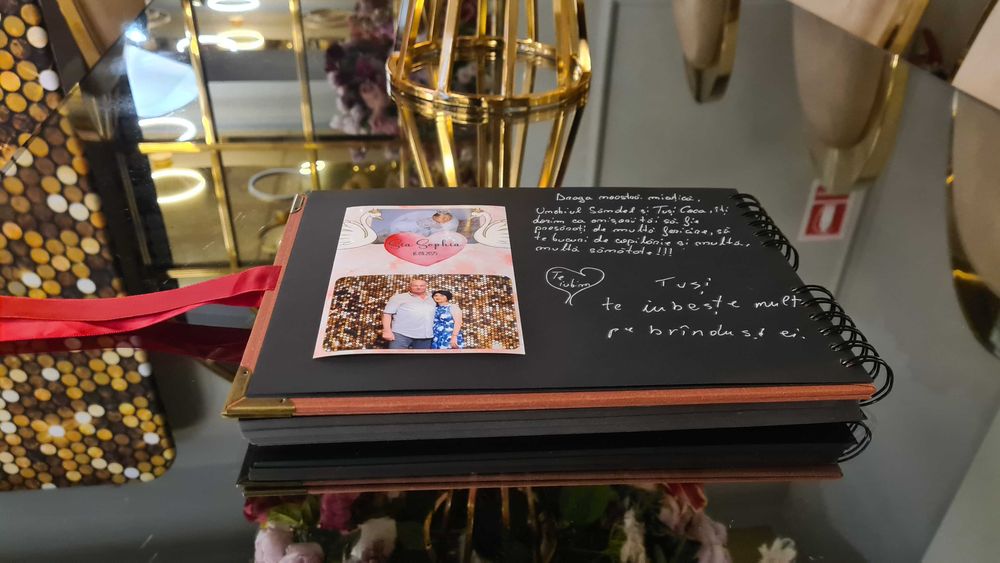 Sophia
Draga noastră mică,
Unchiul Sandel și Tuși Coca, îți
dorim ca
de multă fericire, să
te bucuri de copilărie și multă,
multă sănătate!!!
Te
iubim
Tuși
te iubește mult
pe brîndușa ei.